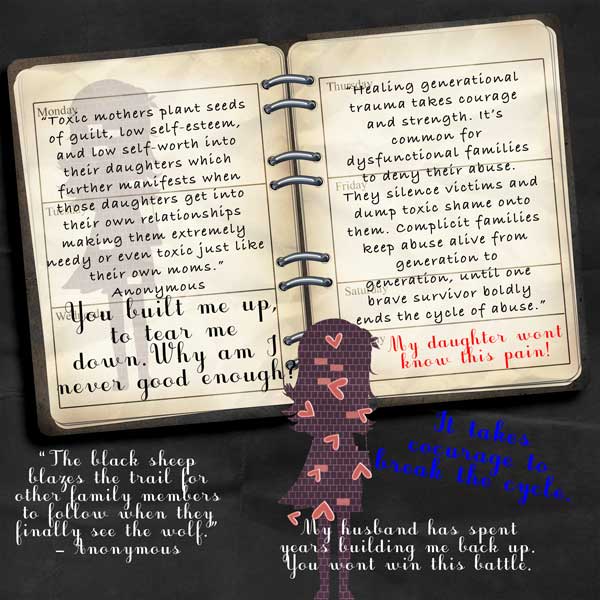 Monday
"Toxic mothers plant seeds
of guilt, low self-esteem,
and low self-worth into
their daughters which
further manifests when
those daughters get into
their own relationships
making them extremely
needy or even toxic just like
their own moms."
Anonymous
You built me up,
to tear me
down. Why am I
never good enough?
Thursday
"Healing generational
trauma takes courage
and strength. It's
common for
dysfunctional families
to deny their abuse.
Friday
They silence victims and
dump toxic shame onto
them. Complicit families
keep abuse alive from
generation to
Saturday
generation, until one
brave survivor boldly
ends the cycle of abuse."
My daughter wont
know this pain!
It takes
cocurage to
break the cycle.
"The black sheep
blazes the trail for
other family members
to follow when they
finally see the wolf."
– Anonymous
My husband has spent
years building me back up.
You wont win this battle.